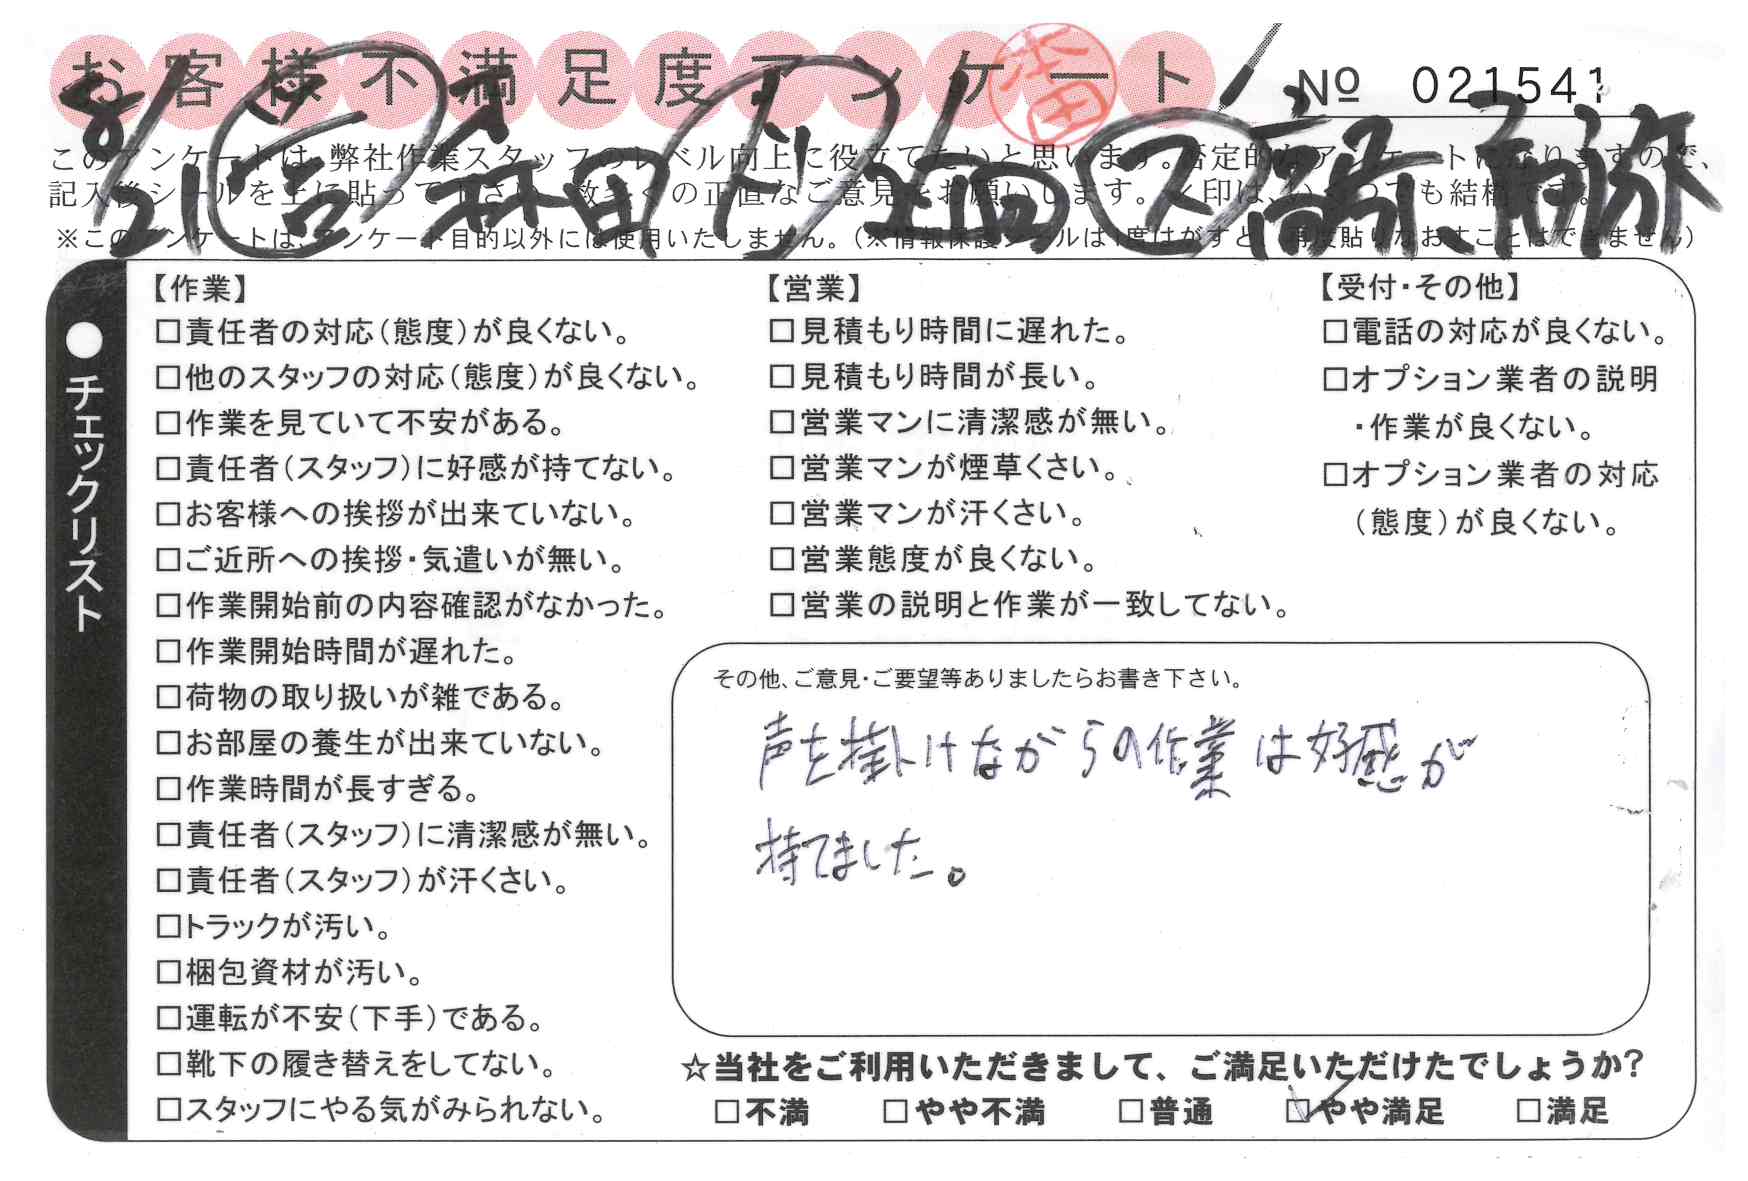 お客様不満足度アンケート
№ 021541
8/21 吉 森田 リ 上田 ス
このアンケートは、弊社作業スタッフのレベル向上に役立てたいと思います。否定的なアンケートになりますので、
記入後シールを上に貼って下さい。数多くの正直なご意見をお願いします。✓印は、いくつでも結構です。
※このアンケートは、アンケート目的以外には使用いたしません。（※情報保護シールは1度はがすと、再度貼りなおすことはできません）
●チェックリスト
【作業】
□責任者の対応（態度）が良くない。
□他のスタッフの対応（態度）が良くない。
□作業を見ていて不安がある。
□責任者（スタッフ）に好感が持てない。
□お客様への挨拶が出来ていない。
□ご近所への挨拶・気遣いが無い。
□作業開始前の内容確認がなかった。
□作業開始時間が遅れた。
□荷物の取り扱いが雑である。
□お部屋の養生が出来ていない。
□作業時間が長すぎる。
□責任者（スタッフ）に清潔感が無い。
□責任者（スタッフ）が汗くさい。
□トラックが汚い。
□梱包資材が汚い。
□運転が不安（下手）である。
□靴下の履き替えをしてない。
□スタッフにやる気がみられない。
【営業】
□見積もり時間に遅れた。
□見積もり時間が長い。
□営業マンに清潔感が無い。
□営業マンが煙草くさい。
□営業マンが汗くさい。
□営業態度が良くない。
□営業の説明と作業が一致してない。
【受付・その他】
□電話の対応が良くない。
□オプション業者の説明
・作業が良くない。
□オプション業者の対応
（態度）が良くない。
その他、ご意見・ご要望等ありましたらお書き下さい。
声を掛けながらの作業は好感が
持てました。
☆当社をご利用いただきまして、ご満足いただけたでしょうか?
□不満 □やや不満 □普通 ☑やや満足 □満足